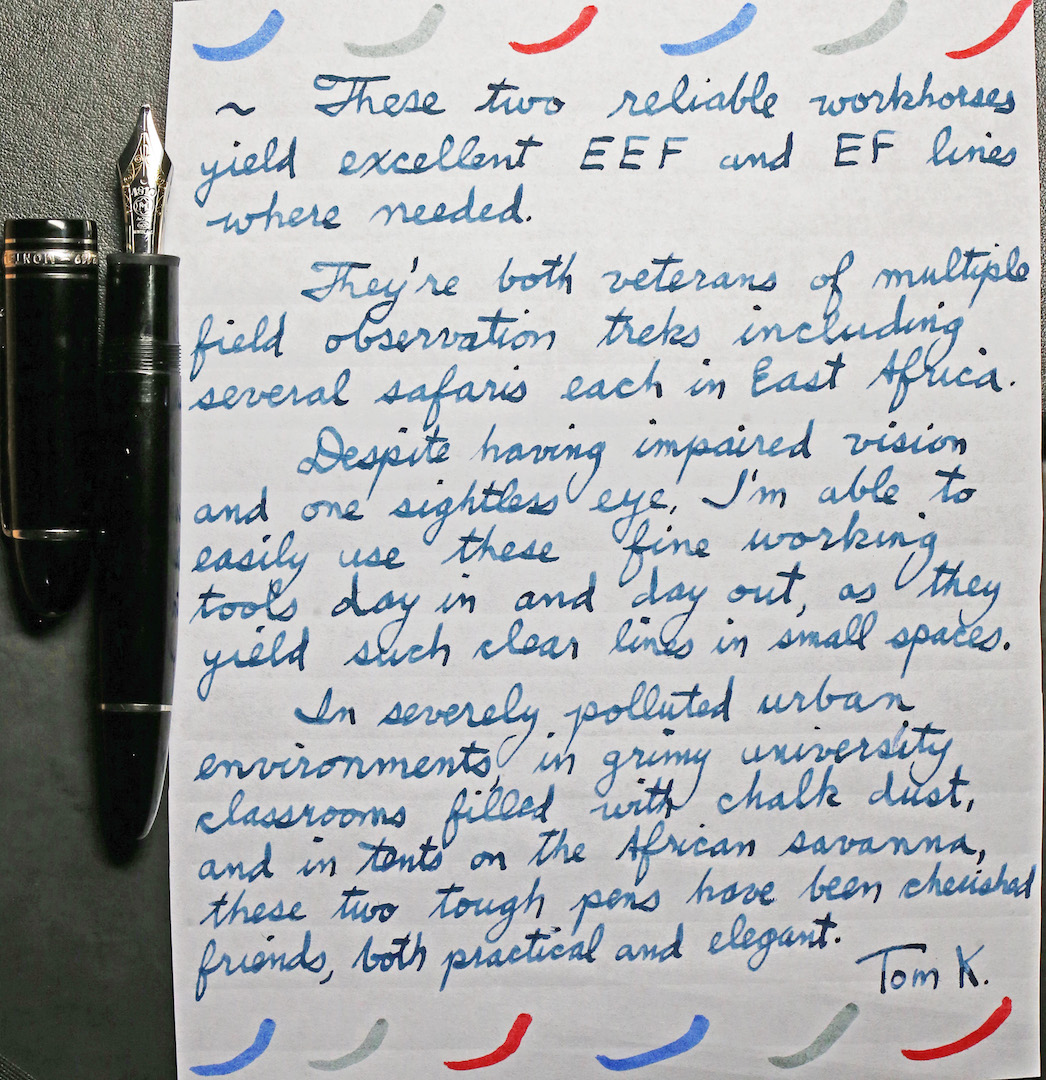 ~ These two reliable workhorses
yield excellent EEF and EF lines
where needed.
They're both veterans of multiple
field observation treks including
several safaris each in East Africa.
Despite having impaired vision
and one sightless eye, I'm able to
easily use these fine working
tools day in and day out, as they
yield such clear lines in small spaces.
In severely polluted urban
environments, in grimy university
classrooms filled with chalk dust,
and in tents on the African savanna,
these two tough pens have been cherished
friends, both practical and elegant.
Tom K.